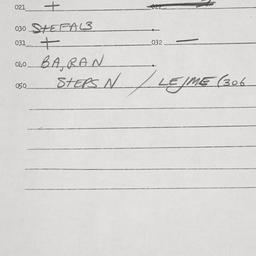 021 +
030 STEFAL3
031 + 032 —
040 BA, RAN
050 STEPS N / LEJME (306